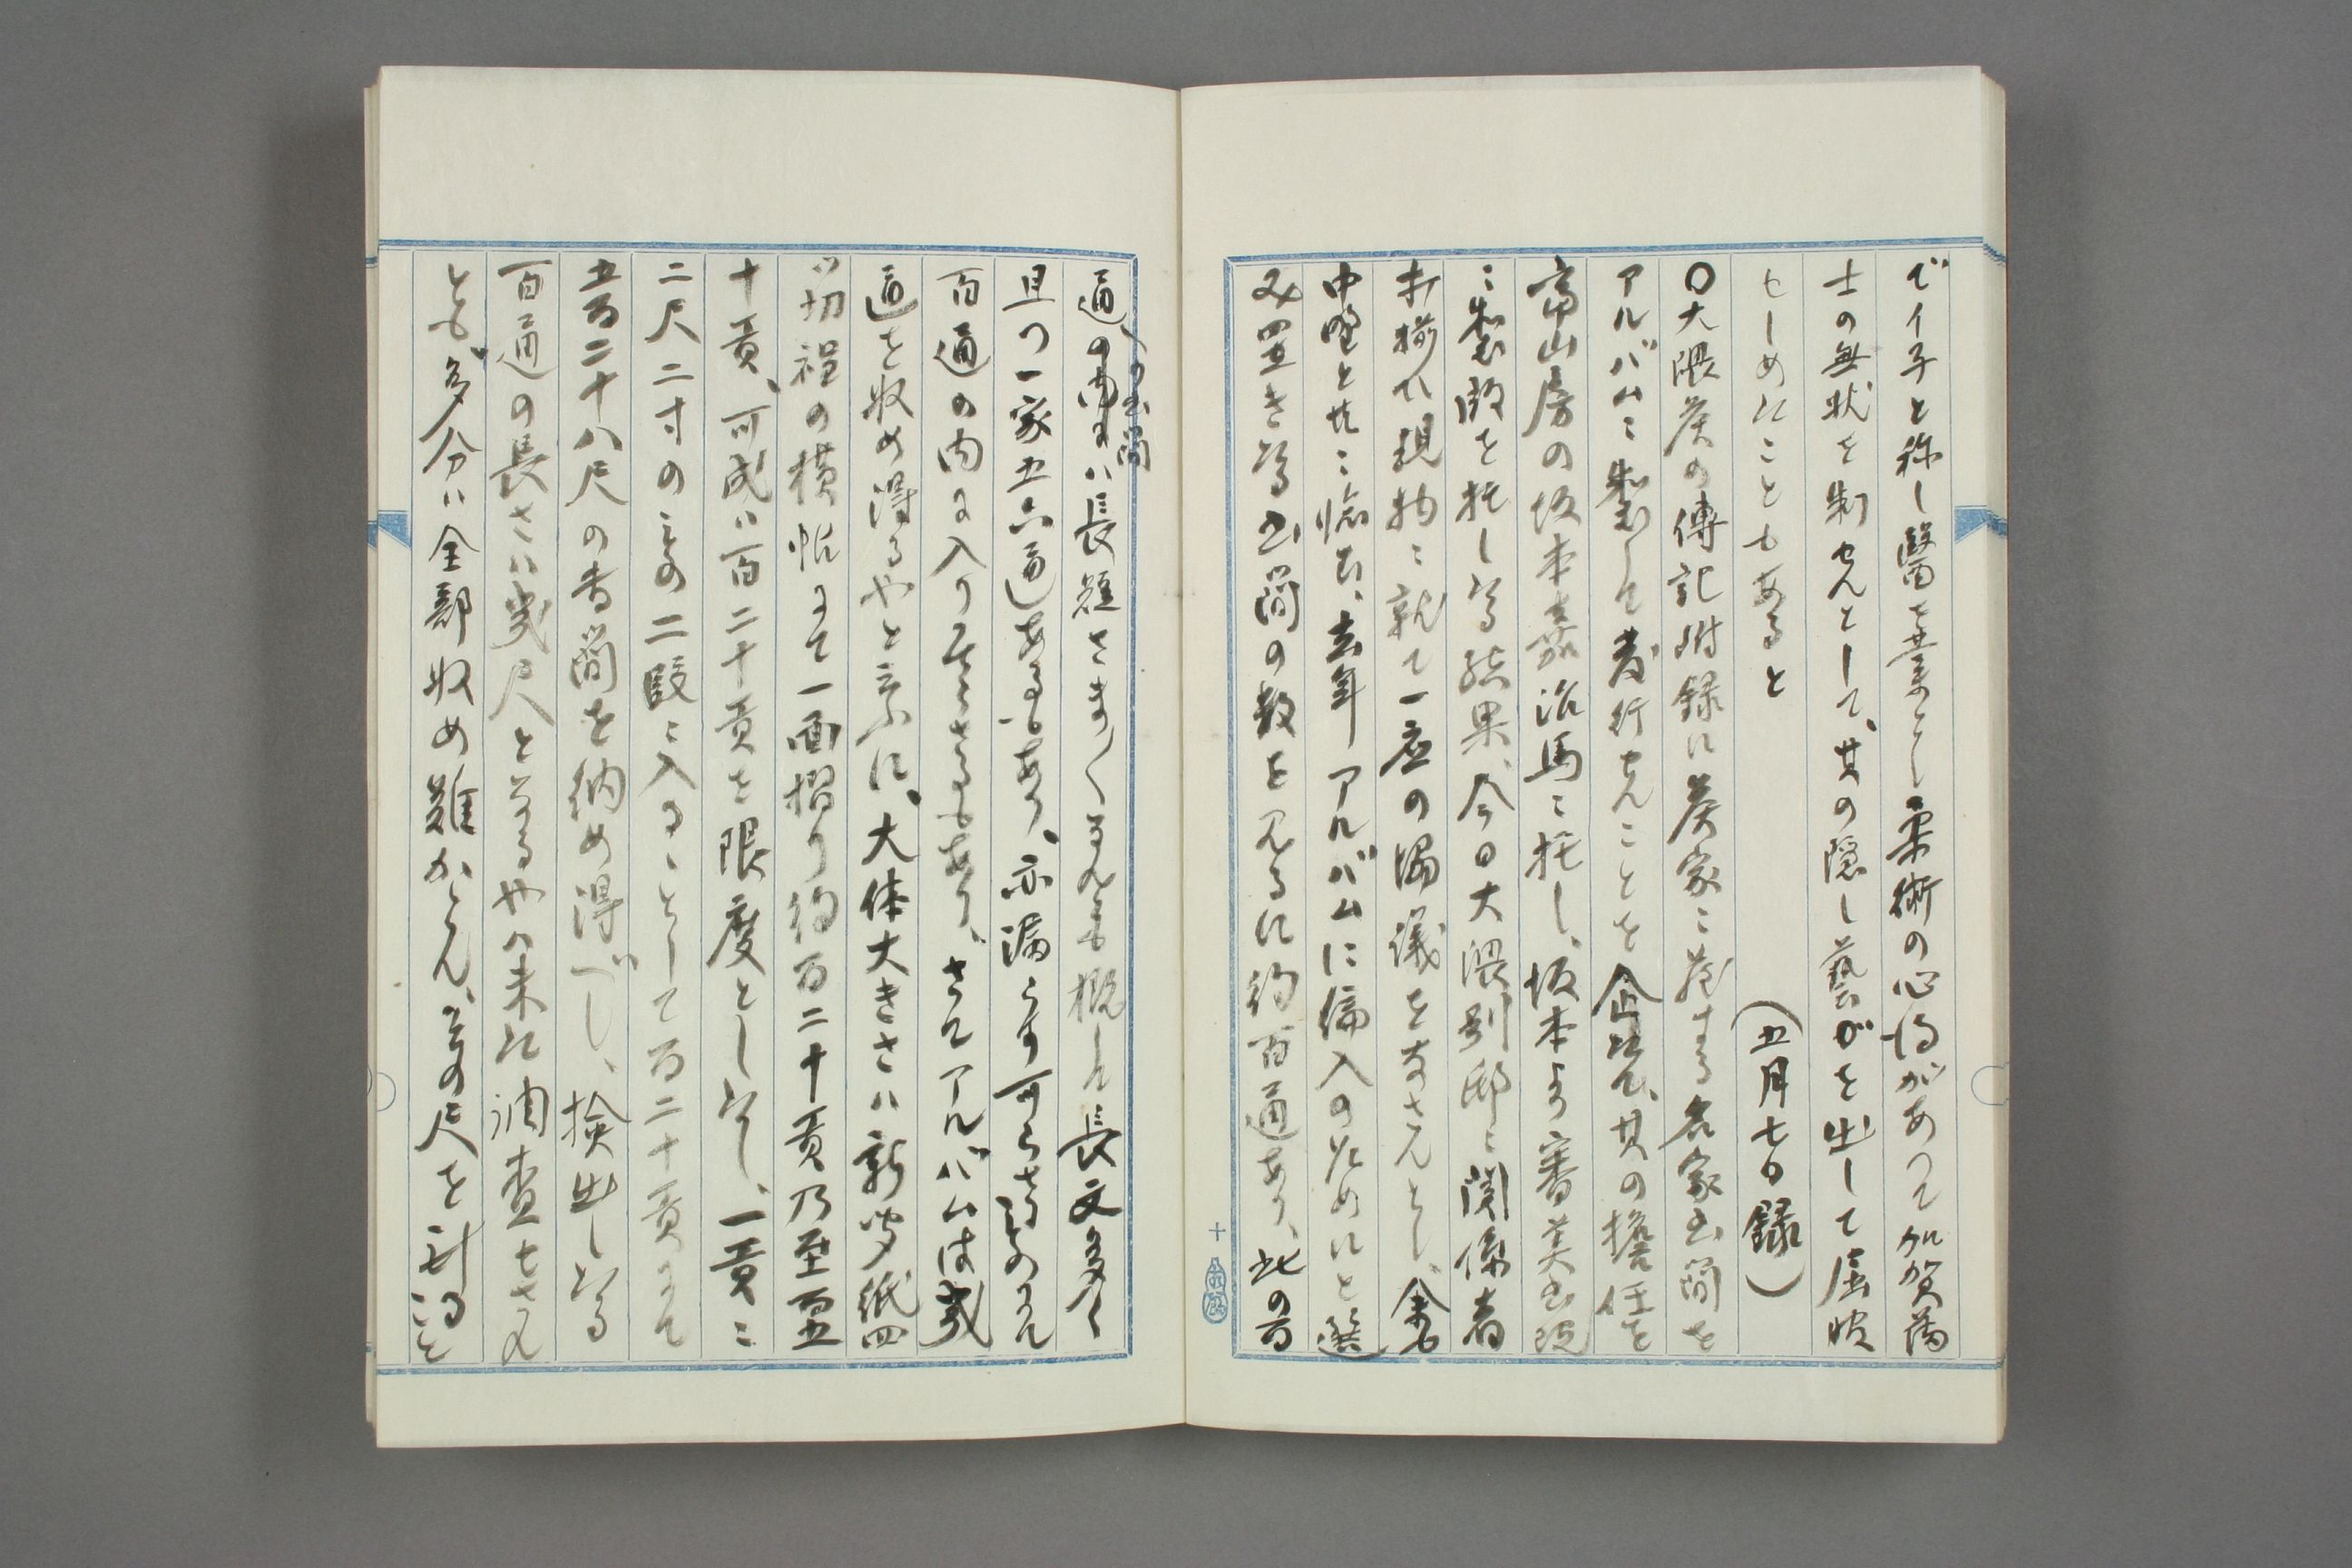 でイ子と称し醫を業とし柔術の心得があつて加賀藩
士の無状を制せんとして、其の隠し藝がを出して屈服
せしめたこともあると
(五月七日録)
〇大隈侯の傳記附録に侯家に蔵する名家書簡を
アルバムに製して発行せんことを企て、其の擔任を
冨山房の坂本嘉治馬に托し、坂本より審美書院
に製版を托したる結果、今日大隈別邸に関係者
打揃ひ現物に就て一應の協議をなさんとし、余も
中野と共に臨む、去年アルバムに編入のためにと選
み置きたる書簡の数を見るに約百通あり、此の百
通の書簡の内には長短さま〲なるも概して長文多く
且つ一家五六通あるもあり、亦漏らす可らざるものにて
百通の内に入りてざるもあり、さてアルバムは幾
通を収め得るやと云ふに、大体大きさハ新聞紙四
ツ切程の横帖にて一面摺り約百二十頁乃至百五
十頁、可成ハ百二十頁を限度としたし、一頁に
二尺二寸のもの二段に入ることゝして百二十頁にて
五百二十八尺の書簡を納め得べし、撿出したる
百通の長さは幾尺となるや未だ調査せざれ
ども多分は全部収め難からん、その尺を計ること